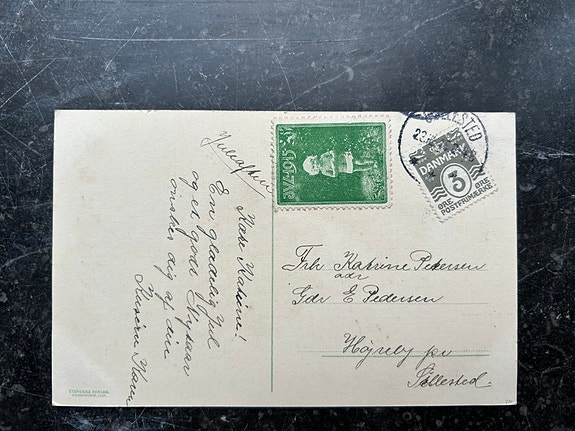 Juleaften
Kære Katrine!
En glædelig Jul
og et godt Nytaar
ønskes dig af din
Kusine
JUL 1907
SØLLESTED
DANMARK
3
ØRE ØRE
POSTFRIMÆRKE
Frk Katrine Petersen
adr
Gdr E Pedersen
Højreby pr
Søllested.
STENDERS FORLAG.